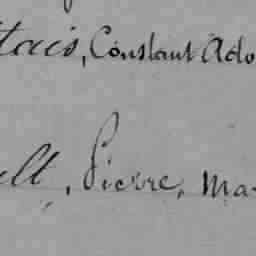 tais, Constant Ado
ult, Pierre, Ma